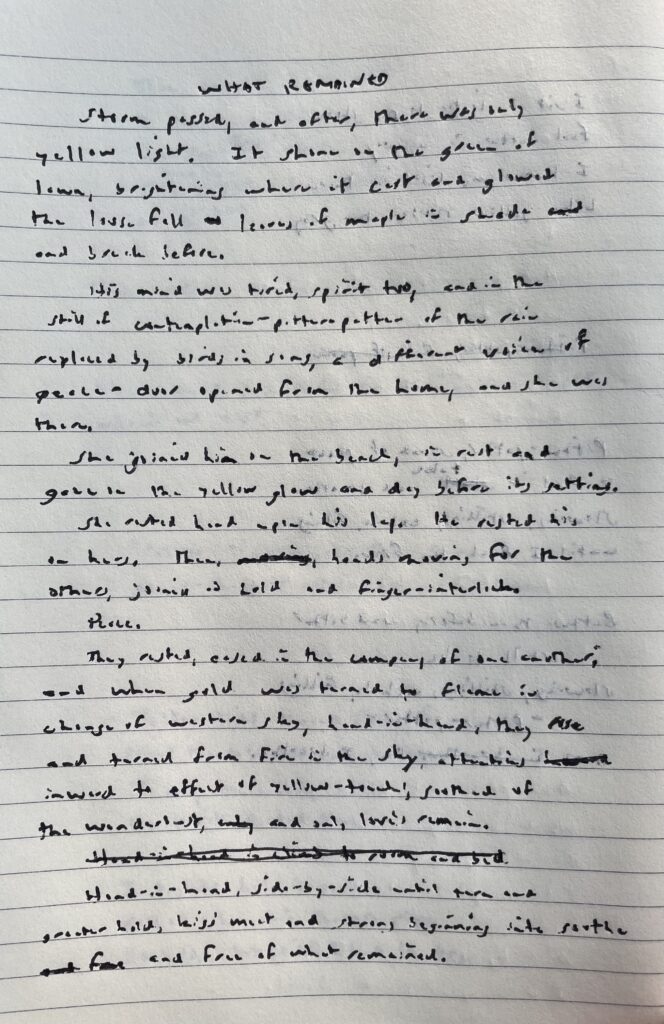 WHAT REMAINED
Storm passed, and after, there was only
yellow light. It shone on the green of
lawn, brightening where it cast and glowed
the loose fall leaves of maple in shade and
and break before.
His mind was tired, spirit two, and in the
still of contemplation-pitterpatter of the rain
replaced by birds in song, a different voice of
peace- door opened from the home, and she was
there.
She joined him on the bench, in rest and
gaze in the yellow glow and day before its setting.
She rested head upon his lap. He rested his
on hers. Then, hands moving for the
others, joined in hold and finger-interlock.
Peace.
They rested, eased in the company of one another,
and when gold was turned to flame in
change of western sky, hand-in-hand, they rose
and turned from fire in the sky, attentions
inward to effect of yellow-touch, soothed of
the wonderlust, only and only love's remain.
Hand-in-hand in climb to room and bed.
Hand-in-hand, side-by-side until turn and
greater hold, kiss meet and strong beginning into soothe
and free of what remained.